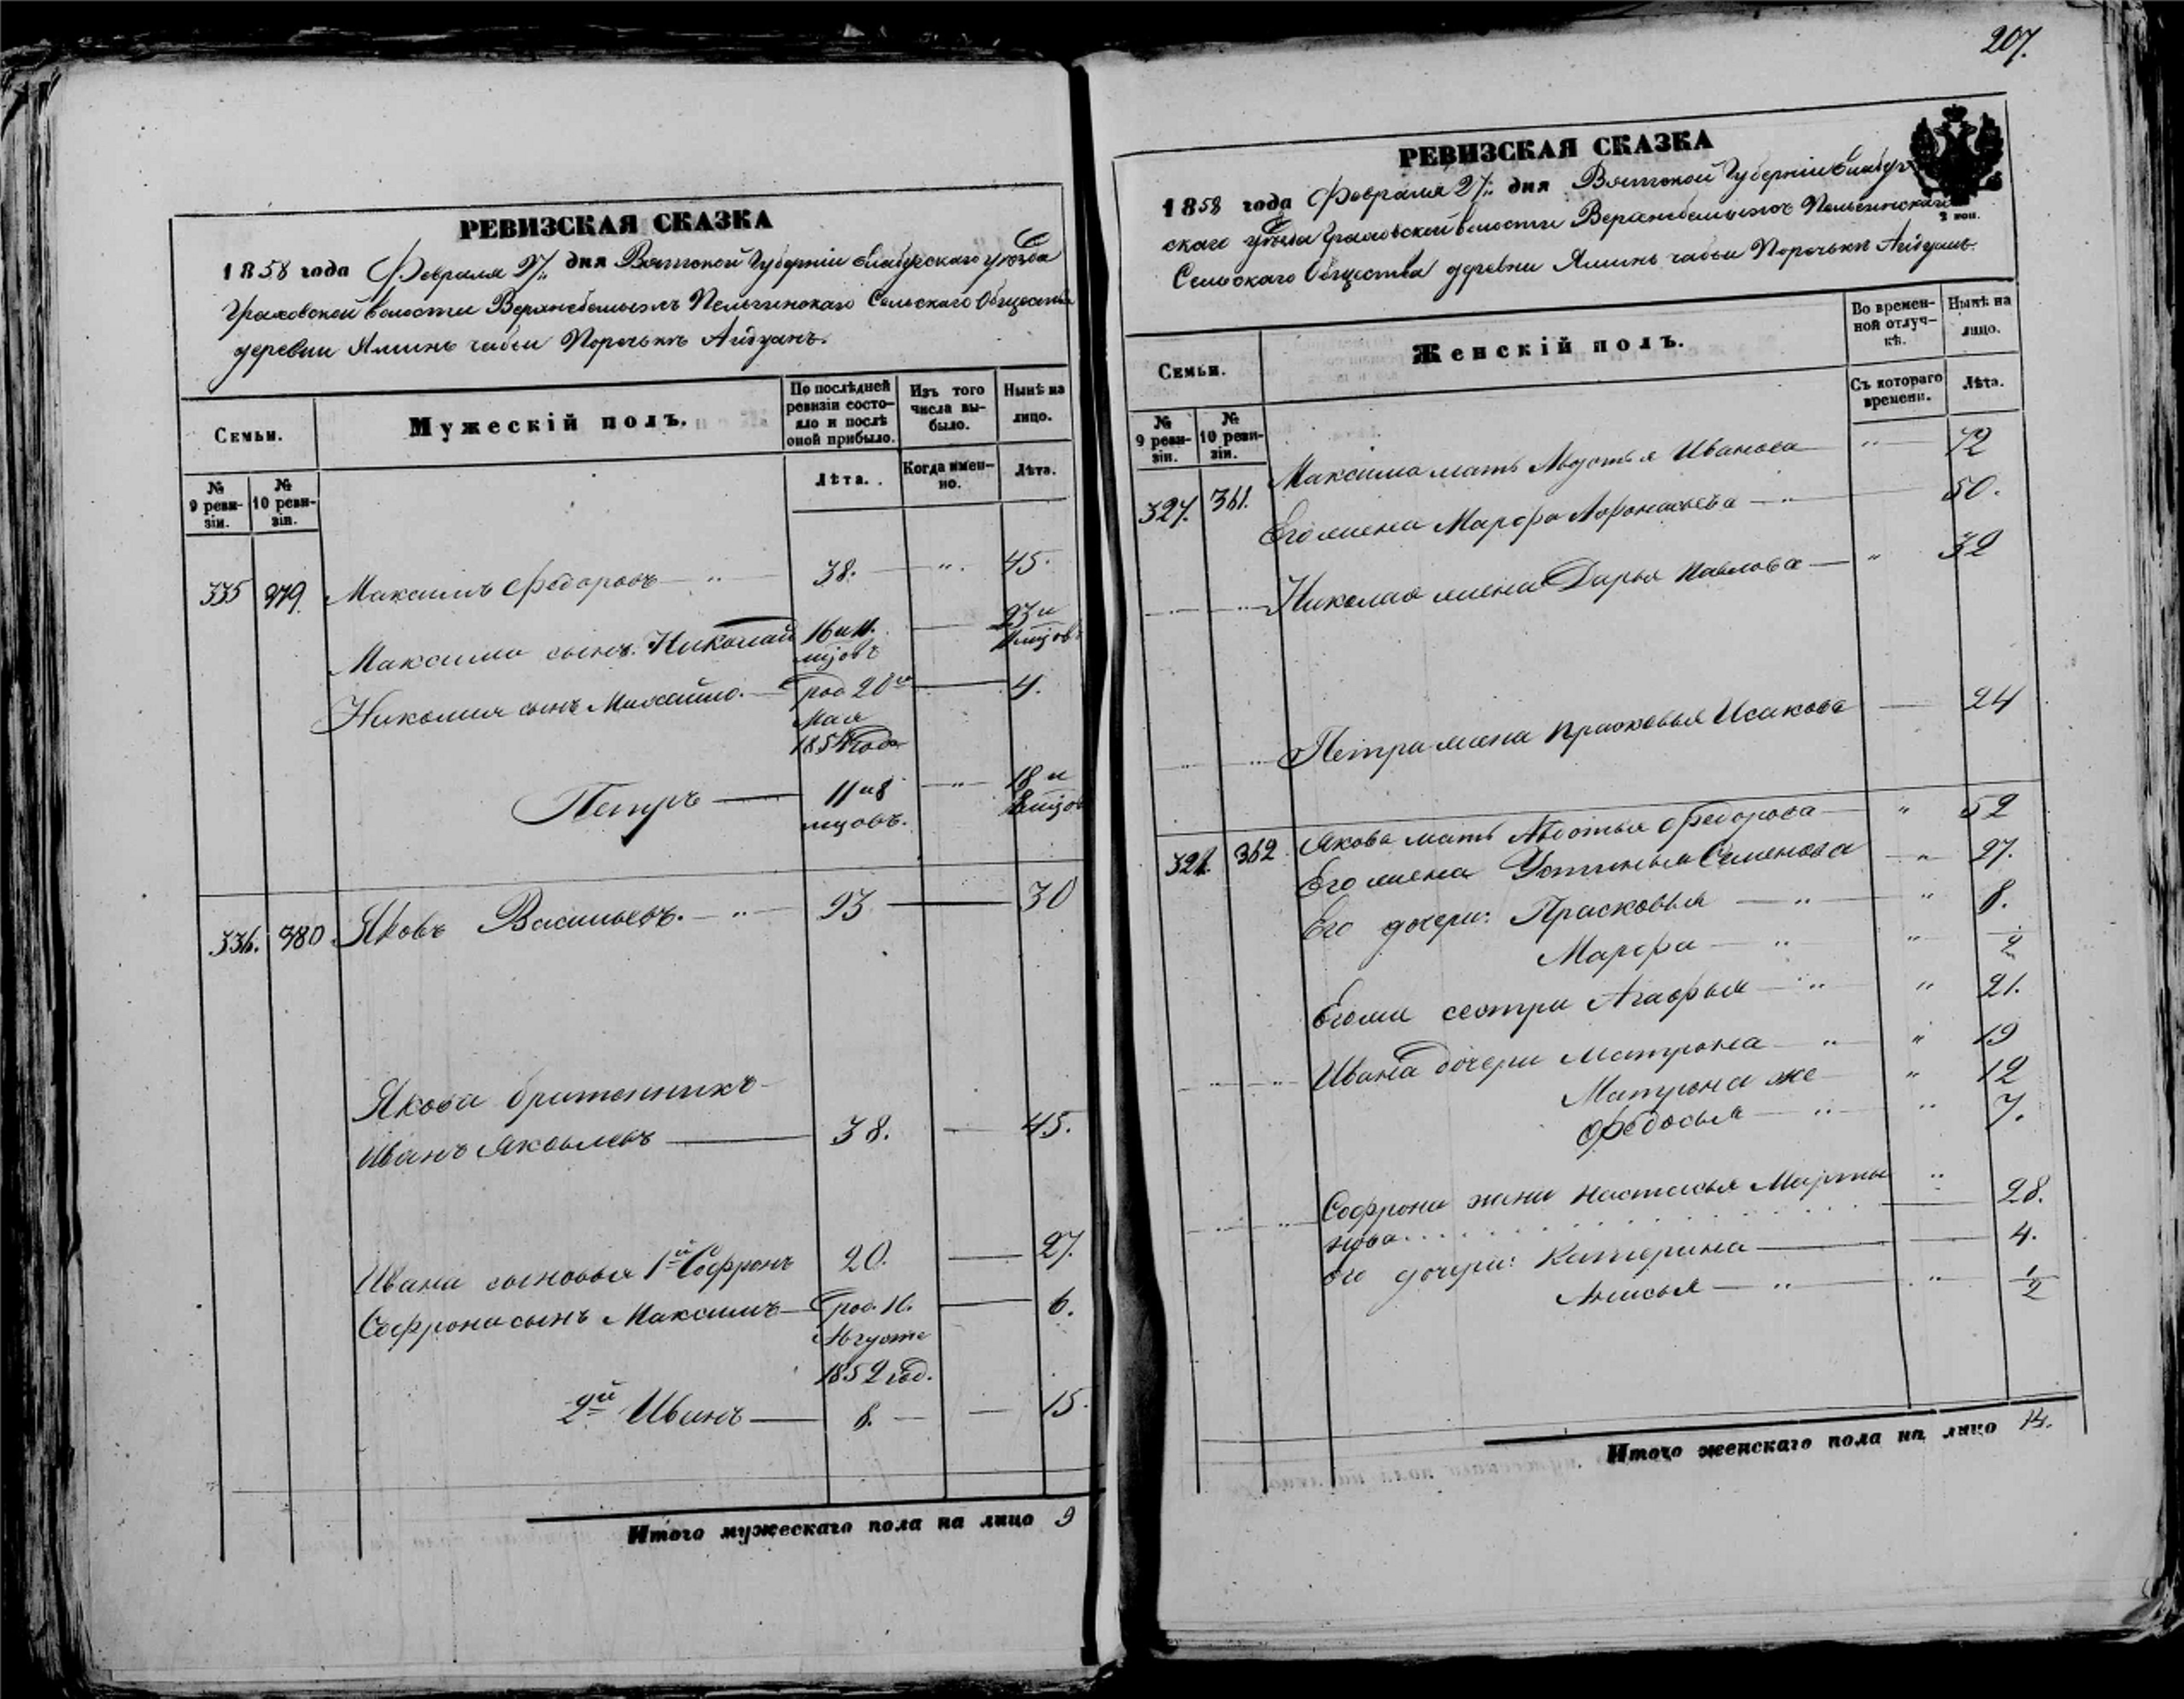 207.
РЕВИЗСКАЯ СКАЗКА
1858 года Февраля 27: дня Вятской Губерніи Елабугскаго уѣзда
Граховской волости Сельскаго Общества
деревни Яминъ чабьи Поречькѣ Айдуанъ.
Семьи.
Мужескій полъ.
По послѣдней ревизіи состояло и послѣ оной прибыло.
Изъ того числа выбыло.
Нынѣ на лицо.
№ 9 ревизіи.
№ 10 ревизіи.
Лѣта.
Когда именно.
Лѣта.
335 379. Максимъ Федоровъ — " — 38. — ". 45.
Максима сынъ. Николай 16 и 11. мцовъ — 23 и 11 мцовъ
Николая сынъ Михайло. — род 20го Мая 1854 года — 4.
Петръ — 11 и 8 мцовъ. — " — 18 и 8 мцов
336. 380 Яковъ Васильевъ. — " — 23 — 30
Якова братенникъ
Иванъ Яковлевъ — 38. — 45.
Ивана сыновья 1й Софронъ 20. — 27.
Софрона сынъ Максимъ — род. 16. Августа 1852 год. — 6.
2й Иванъ — 8. — — 15.
Итого мужескаго пола на лицо 9
РЕВИЗСКАЯ СКАЗКА
2 коп.
1858 года Февраля 27: дня Вятской Губерніи Елабуг
скаго уѣзда Граховской волости
Сельскаго Общества деревни Яминъ чабьи Поречькѣ Айдуанъ.
Семьи.
Женскій полъ.
Во временной отлучкѣ.
Нынѣ на лицо.
№ 9 ревизіи.
№ 10 ревизіи.
Съ котораго времени.
Лѣта.
327. 361. Максима мать Авдотья Иванова " — 72
Его жена Марфа Афонасьева — " — 50.
" — " — Николая жена Дарья Павлова — " 32
" — " — Петра жена Прасковья Исакова — 24
328. 362. Якова мать Авдотья Федорова — " 52
Его жена Устинья Семенова — " — 27.
Его дочери: Прасковья — " — " 8.
Марфа — " — " 2
Его же сестра Агафья — " — " 21.
" — " — Ивана дочери Матрона — " — " 19
Матрона же — " 12
Федосья — " — " 7.
" — " — Софрона жена Настасья Марты
нова . . . . " — 28.
его дочери: Катерина — 4.
Анисья — " — " 1/2
Итого женскаго пола на лицо 14.